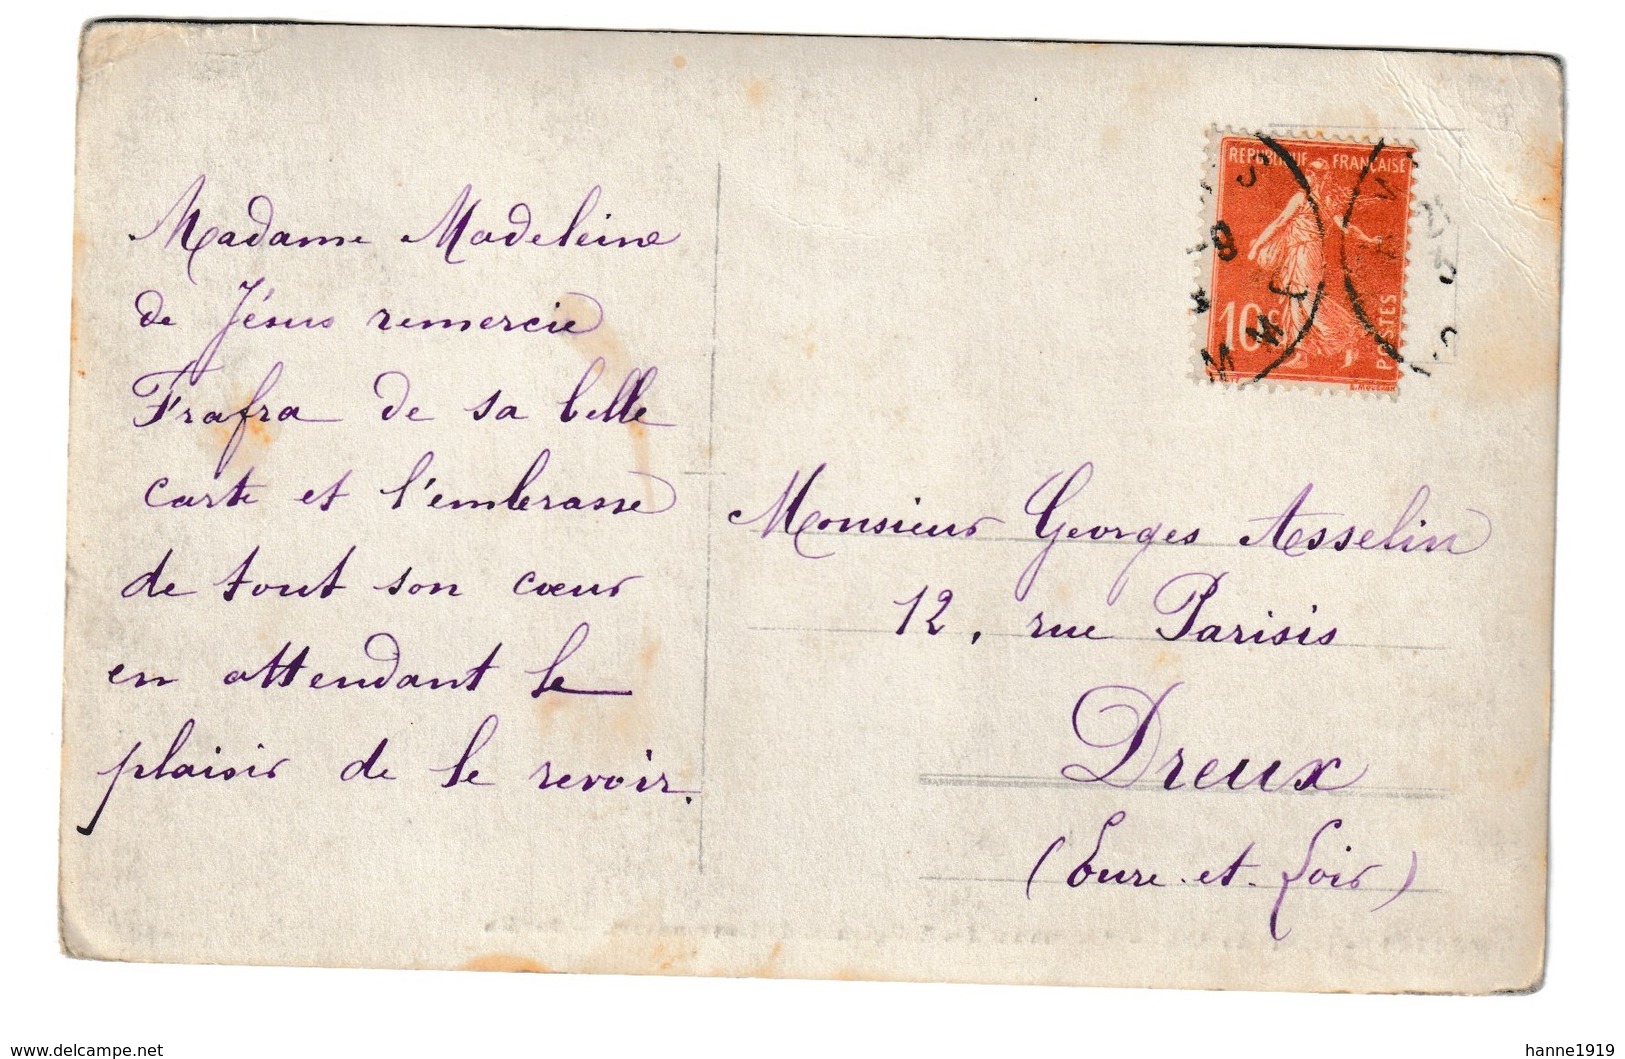 Madame Madeleine
de Jésus remercie
Frafra de sa belle
carte et l'embrasse
de tout son cœur
en attendant le
plaisir de le revoir.
REPUBLIQUE FRANÇAISE
10c
POSTES
Monsieur Georges Asselin
12, rue Parisis
Dreux
(Eure-et-Loir)
www.delcampe.net
hanne1919